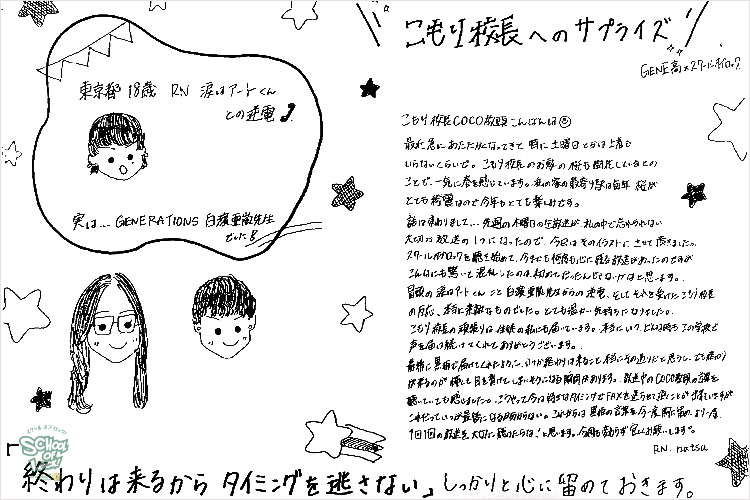 東京都 18歳 RN 涙はアートくん
との逆電
実は... GENERATIONS 白濱亜嵐先生
でした!
こもり校長へのサプライズ
GENE高×スクールオブロック
こもり校長COCO教頭こんばんは
最近急にあたたかくなってきて 特に土曜日とかは上着も
いらないくらいで。こもり校長のお家の桜も開花しているとの
ことで、一気に春を感じています。私の家の最寄り駅は毎年 桜が
とても綺麗なので今年もとても楽しみです。
話は変わりまして... 先週の木曜日の生放送が、私の中で忘れられない
大切な放送の1つになったので、今回はそのイラストにさせて頂きました。
スクールオブロックを聴き始めて、今までも何度も心に残る放送があったのですが
こんなにも驚いて混乱したのは初めてだったんじゃないかなと思います。
冒頭の涙はアートくんこと白濱亜嵐先生からの逆電、そしてそれを受けたこもり校長
の反応、本当に素敵なものでした。とても温かい気持ちになりました。
こもり校長の頑張りは 生徒の私にも届いています。本当にいつ、どんな時もこの学校で
声を届け続けてくれてありがとうございます。
最後に黒板で届けてくれたように、いつか終わりは来ること、本当にその通りだと思うし、でも終わり
が来るのが怖くて目を背けてしまいそうになる瞬間があります。放送中のCOCO教頭の言葉を
聴いていても感じました。こうやって今は好きなタイミングでFAXを送らせて頂くことが出来ていますが
これだっていつが最後になるか分からない。これからは黒板の言葉を今一度胸に留め、より一層、
1回1回の放送を大切に聴けたらな!と思います。今週も変わらず宜しくお願いします。
RN. natsu
スクール オブ ロック!
SCHOOL OF LOCK!
「終わりは来るから タイミングを逃さない」しっかりと心に留めておきます。